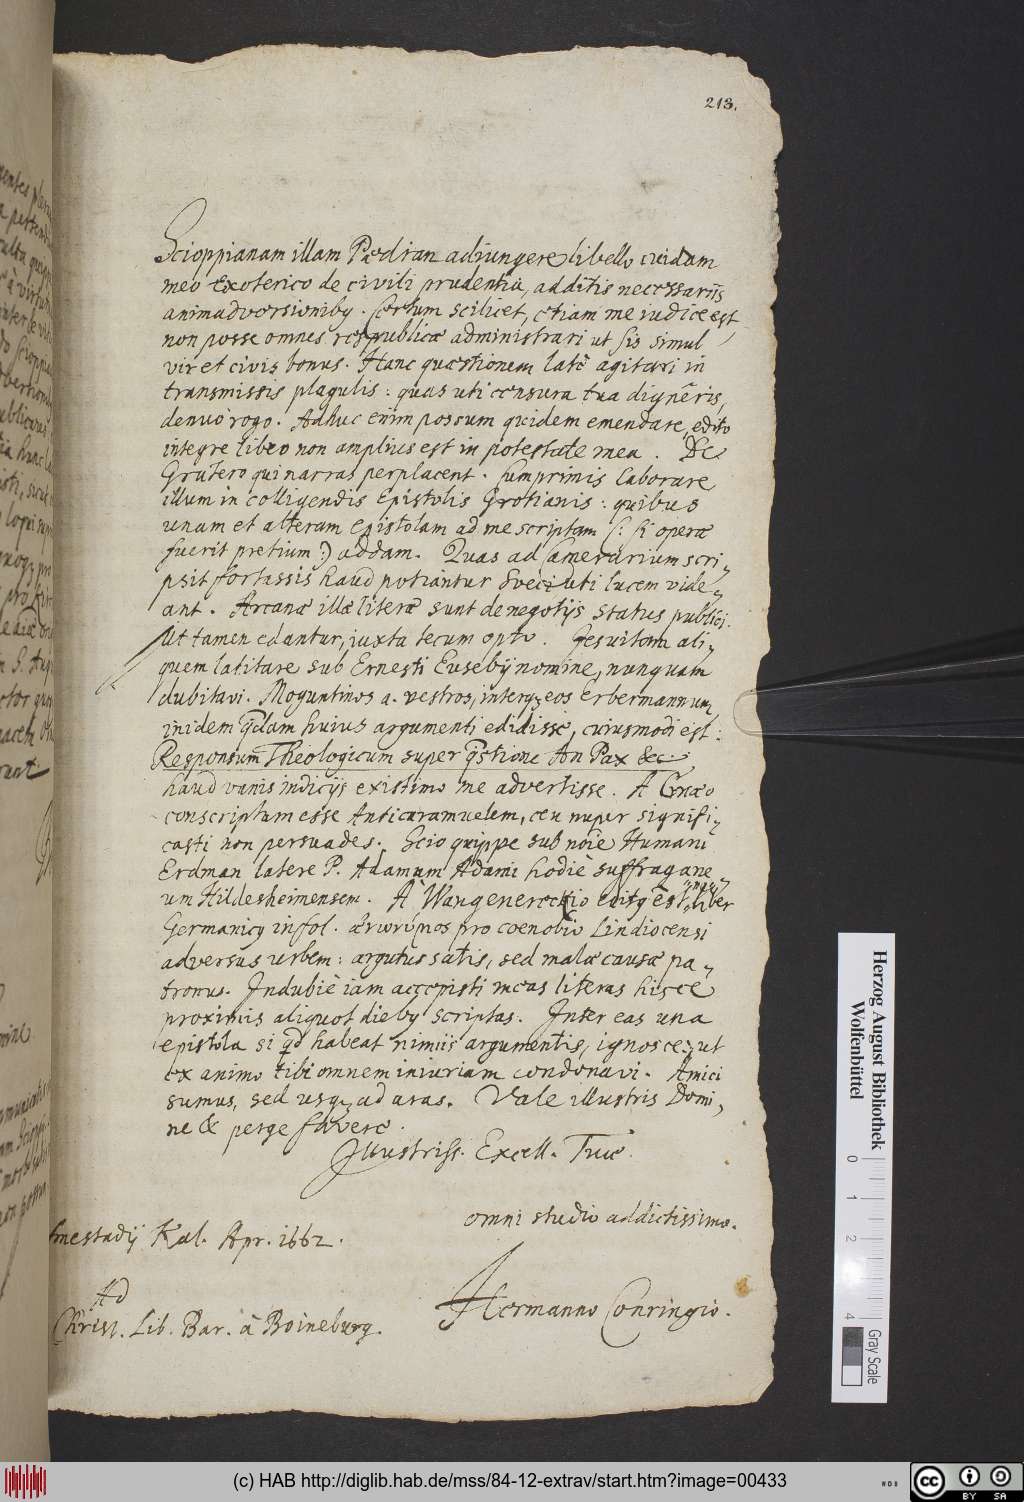 213.
Scioppianam illam Pædian adiungere libello cuidam
meo exoterico de civili prudentia, additis necessariis
animadversionibꝯ. Certum scilicet, etiam me iudice est,
non posse omnes respublicæ administrari ut sis simul
vir et civis bonus. Hanc quæstionem latè agitari in
transmissis plagulis: quas uti censura tua digneris,
denuò rogo. Adhuc enim possum quidem emendare, edito
integre libro non amplius est in potestate mea. De
Grutero qui narras perplacent. Cumprimis laborare
illum in colligendis Epistolis Grotianis: quibus
unam et alteram epistolam ad me scriptam (: si operæ
fuerit pretium :) addam. Quas ad Camerarium scri-
psit fortassis haud potiantur Sveci uti lucem vide-
ant. Arcanæ illæ literæ sunt de negotijs status publici.
Ut tamen edantur, iuxta tecum opto. Jesuitam ali-
quem latitare sub Ernesti Eusebij nomine, nunquam
dubitavi. Moguntinos a. vestros, interq; eos Erbermannum
inidem qdam huius argumenti edidisse, cuiusmodi est:
Responsum Theologicum super qstione An Pax &c
haud vanis indicijs existimo me advertisse. A Cnæo
conscriptum esse Anticaramuelem, ceu nuper signifi-
casti non persuades. Scio quippe sub noie Humani
Erdman latere P. Adamum Adami hodiè suffragane
um Hildesheimensem. A Wangenereckio editꝯ est liber
Germanicꝯ in fol. pro coenobio Lindiocensi
adversus urbem: argutus satis, sed malæ causæ pa-
tronus. Indubiè iam accepisti meas literas hisce
proximis aliquot diebꝯ scriptas. Inter eas una
epistola si qd habeat nimii argumentis, ignosce: ut
ex animo tibi omnem iniuriam condonavi. Amici
sumus, sed usq; ad aras. Vale illustris Domi-
ne & perge favere.
Illustriss. Excell. Tuæ
omni studio addictissimo.
Kal. Apr. 1662.
Hermanno Conringio.
Ad
Christ. Lib. Bar. à Boineburg.
Herzog August Bibliothek
Wolfenbüttel
0 1 2 4
Gray Scale
(c) HAB http://diglib.hab.de/mss/84-12-extrav/start.htm?image=00433
cc BY SA